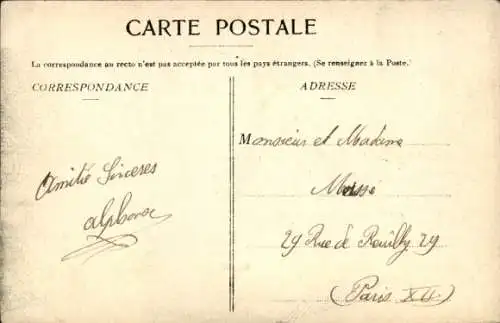 CARTE POSTALE
La correspondance au recto n'est pas acceptée par tous les pays étrangers. (Se renseignez à la Poste.)
CORRESPONDANCE
ADRESSE
Monsieur et Madame
Amitié Sinceres
Alphonse
29 Rue de Reuilly 29
(Paris XII)